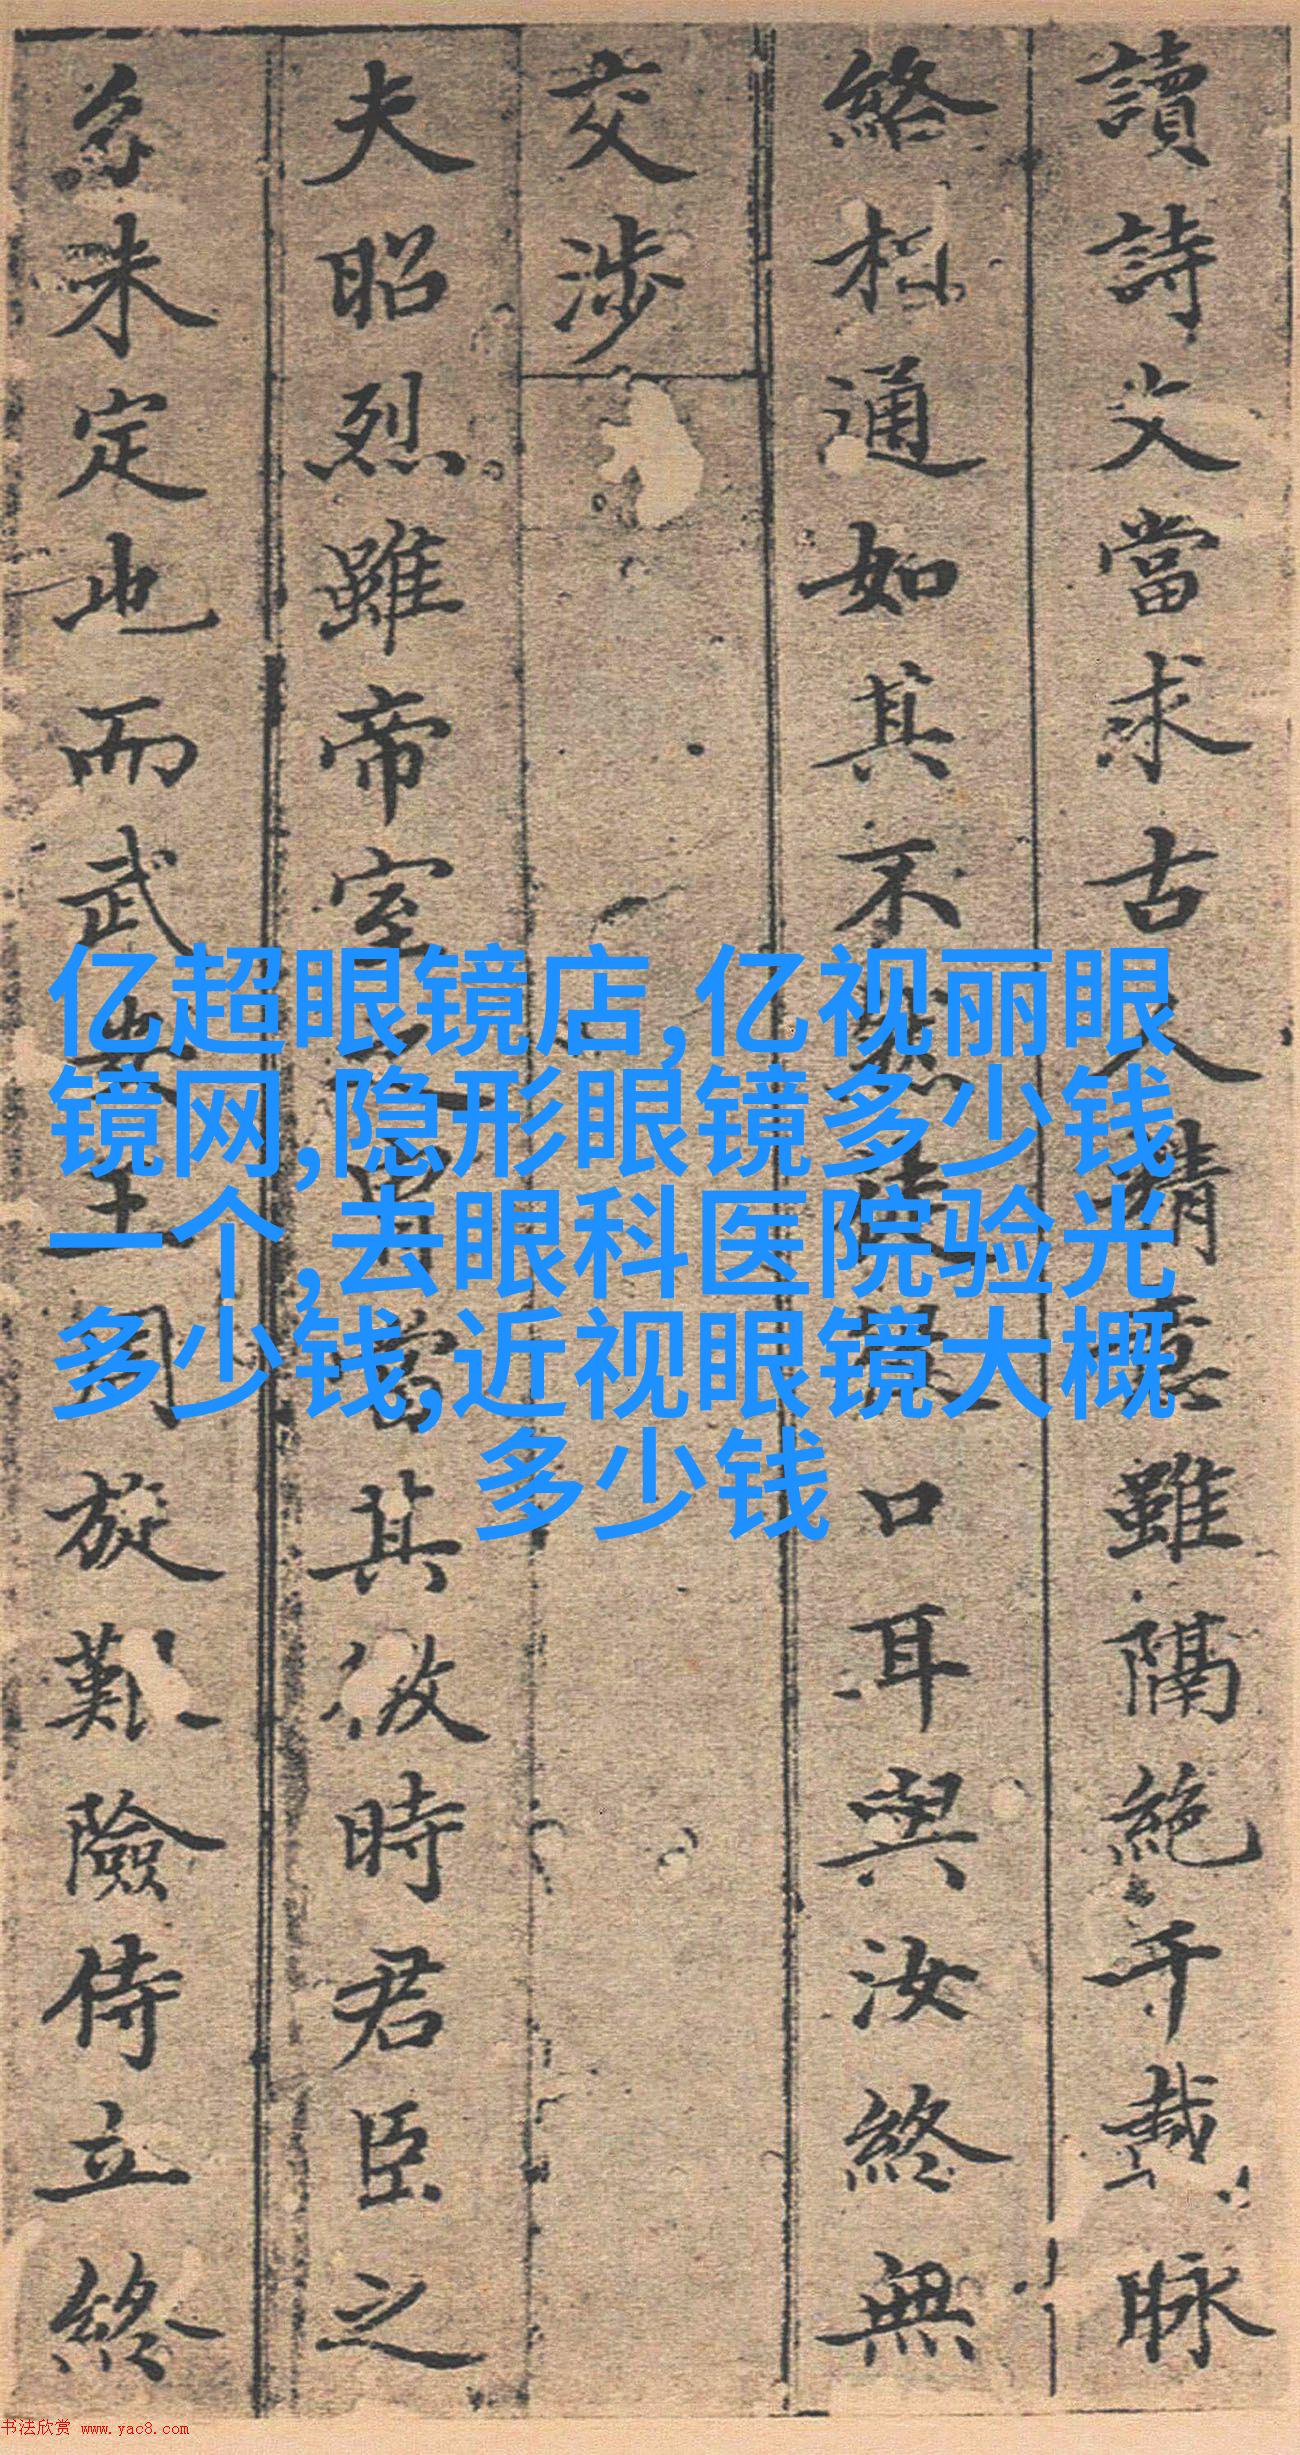 讀詩文當求古人精意雖隔絶千載脉
絡相通如其不然徒口耳與汝終無
交涉
夫昭烈雖帝室之胄當其微時君臣之
分未定也而武安王周旋艱險侍立終
亿超眼镜店,亿视丽眼
镜网,隐形眼镜多少钱
一个,去眼科医院验光
多少钱,近视眼镜大概
多少钱
书法欣赏 www.yac8.com